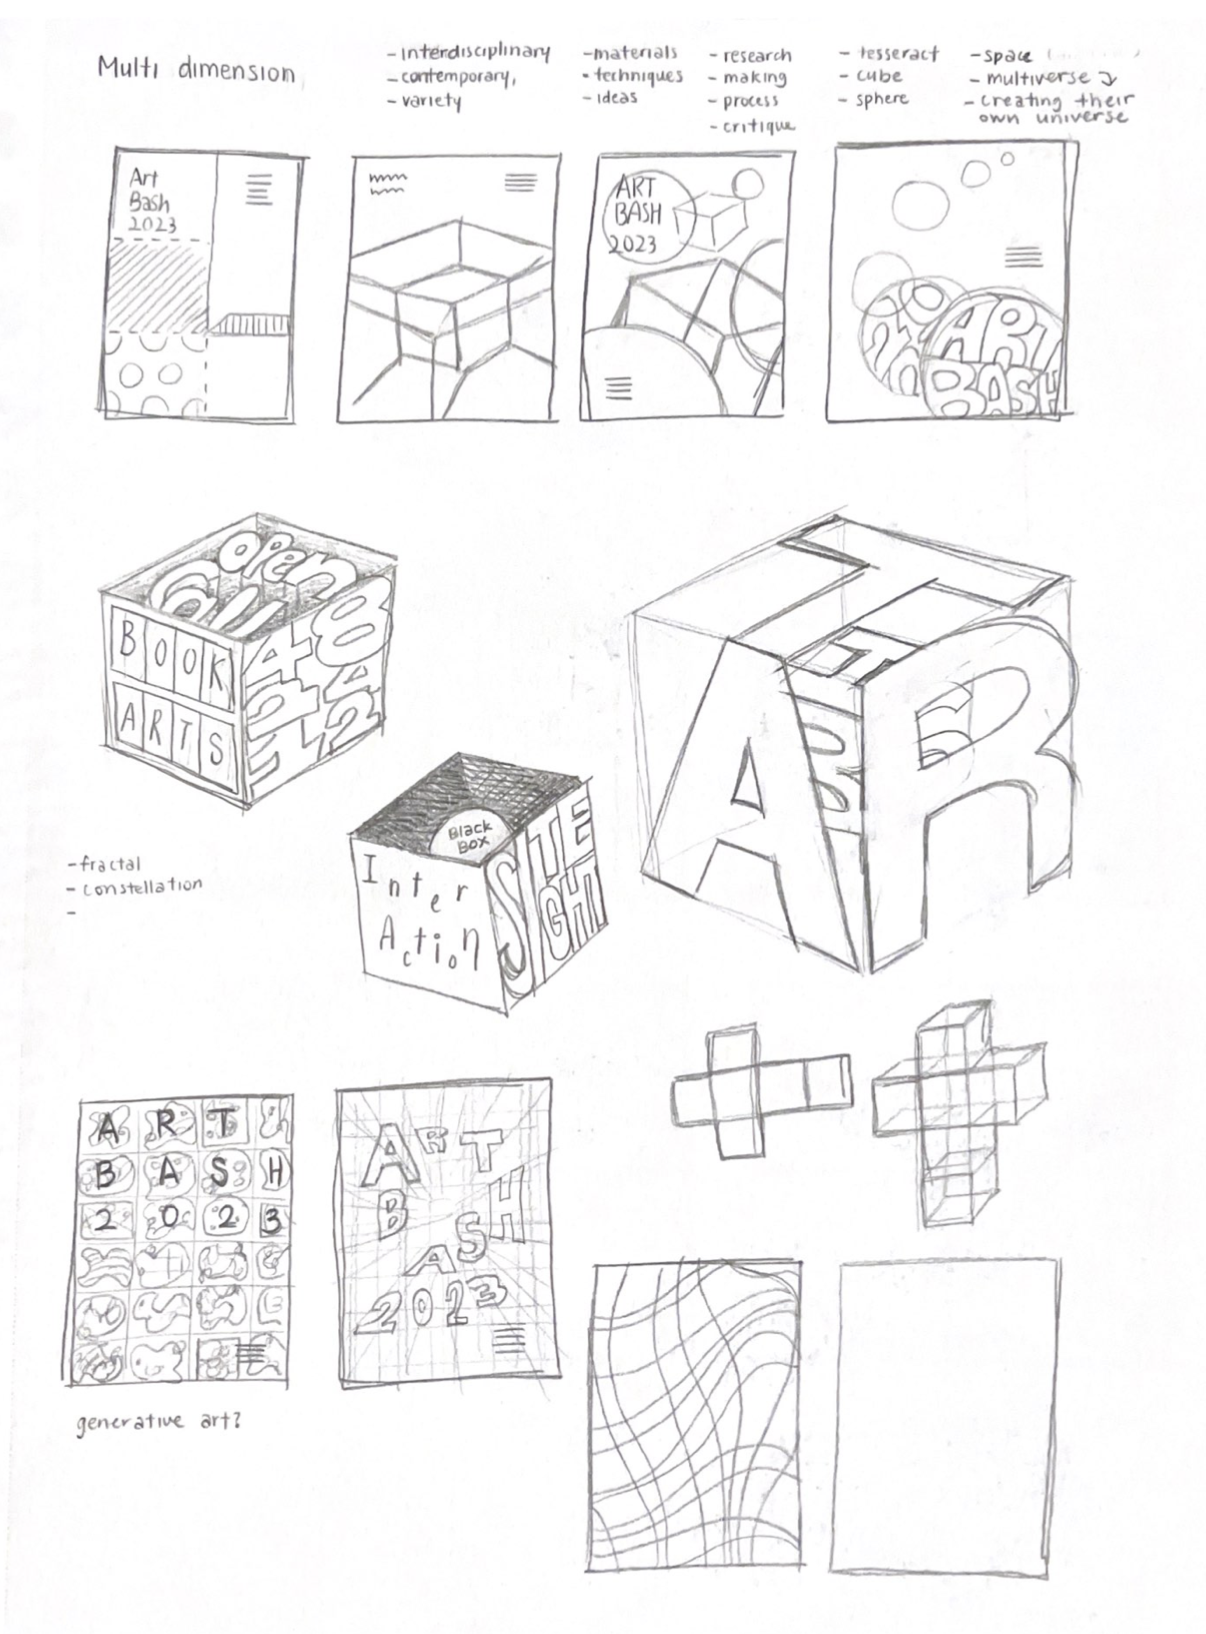 Multi dimension
- interdisciplinary
- contemporary,
- variety
- materials
- techniques
- ideas
- research
- making
- process
- critique
- tesseract
- cube
- sphere
- space
- multiverse
- creating their
own universe
Art
Bash
2023
ART
BASH
2023
ART
BASH
open
BOOK
ARTS
- fractal
- constellation
-
Black
BOX
Inter
Action
SITE
SIGHT
ART
ART
BASH
2023
ART
BASH
2023
generative art?